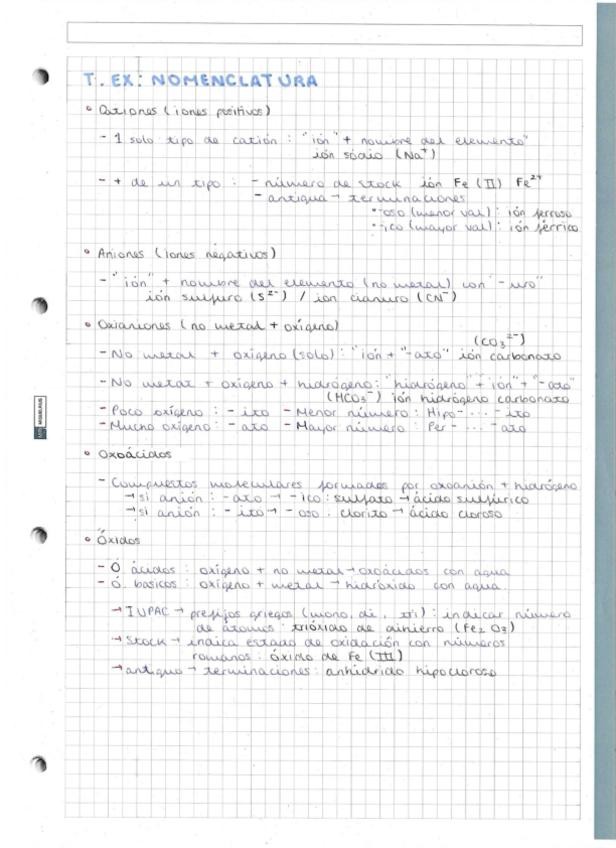 T. EX: NOMENCLATURA
• Cationes (iones positivos)
- 1 solo tipo de catión : "ión" + nombre del elemento"
ión sódio (Na⁺)
- + de un tipo : - número de stock ión Fe (II) Fe²⁺
- antigua → terminaciones
•-oso (menor val) : ión ferroso
•-ico (mayor val) : ión férrico
• Aniones (iones negativos)
- "ión" + nombre del elemento (no metal) con "-uro"
ión sulfuro (S²⁻) / ión cianuro (CN⁻)
• Oxianiones (no metal + oxígeno)
(CO₃²⁻)
- No metal + oxígeno (solo) : "ión + "-ato" ión carbonato
- No metal + oxígeno + hidrógeno : "hidrógeno" + ión" + "-ato"
(HCO₃⁻) ión hidrógeno carbonato
- Poco oxígeno : -ito - Menor número : Hipo- ... -ito
- Mucho oxígeno : -ato - Mayor número : Per- ... -ato
• Oxoácidos
- Compuestos moleculares formados por oxoanión + hidrógeno
→ si anión : -ato → -ico : sulfato → ácido sulfúrico
→ si anión : -ito → -oso : clorito → ácido cloroso
• Óxidos
- Ó ácidos : oxígeno + no metal → oxoácidos con agua
- Ó. basicos : oxígeno + metal → hidróxido con agua.
→ IUPAC → prefijos griegos (mono, di, tri) : indicar número
de átomos : trióxido de dihierro (Fe₂O₃)
→ Stock → indica estado de oxidación con números
romanos : óxido de Fe (III)
→ antiguo → terminaciones : anhídrido hipocloroso
MIQUELRIUS